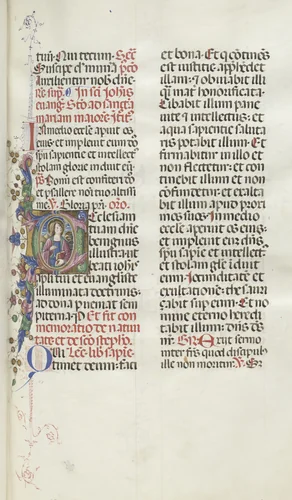 tuū. Qui tecum. Secr̄.
Suscipe dn̄e munera
In sci Johis
euang. Stō ad sanctā
mariam maiorē. Intr̄.
In medio ecclē aperuit os
eius et impleuit eum dn̄s
spū sapientie et intellect⁹
stolam glorie induit eum
p̄s. Bonū est confiteri dn̄o
et psallere noī tuo altissi
me. ꝟ. Gloria pr̄i. orō.
Ecclesiam
tuam dn̄e
benignus
illustra ut
beati iohis
apli tui et euāgliste
illuminata doctrinis
ad dona perueniat sem
piterna. p. Et fit com
memoratio de natiui
tate et de scō stephō.
Lec. lib. sapie.
Qui timet deum faci
et bona. Et q̄ cōtinēs
est iusticie apprehēdet
illam: et obuiabit illi
q̄si mat̄ honorificata.
Cibabit illum pane
vite et intellectus: et
aqua sapientie saluta
ris potabit illum. Et
firmabitur in illo et
non flectetur: et con
tinebit illum et non
confundetur: et exalta
bit illum apud proxi
mos suos. In medio
eccle aperuit os eius:
et impleuit eū dn̄s
spū sapiē et intellect⁹:
et stolam glē iduit
eum. Jocunditatē et
exultationē thesauri
zabit sup eum. Et no
mine eterno heredi
tabit illum: dn̄s ds̄
nr̄. Gr̄. Exiit sermo
inter frēs quod discipul⁹
ille non moritur. ꝟ.